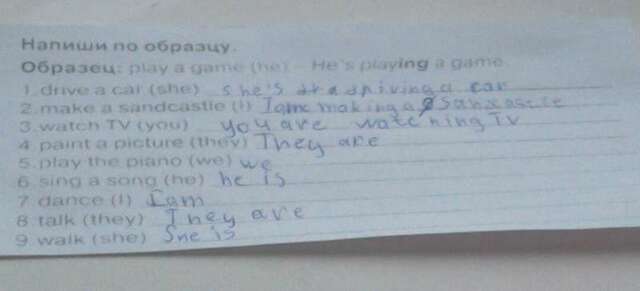 Напиши по образцу.
Образец: play a game (he) – He's playing a game.
1.drive a car (she) she's a car
2.make a sandcastle (I) I am making a
3.watch TV (you) you are watching TV
4 paint a picture (they) They are
5.play the piano (we) we
6.sing a song (he) he is
7 dance (I) I am
8 talk (they) They are
9.walk (she) She is